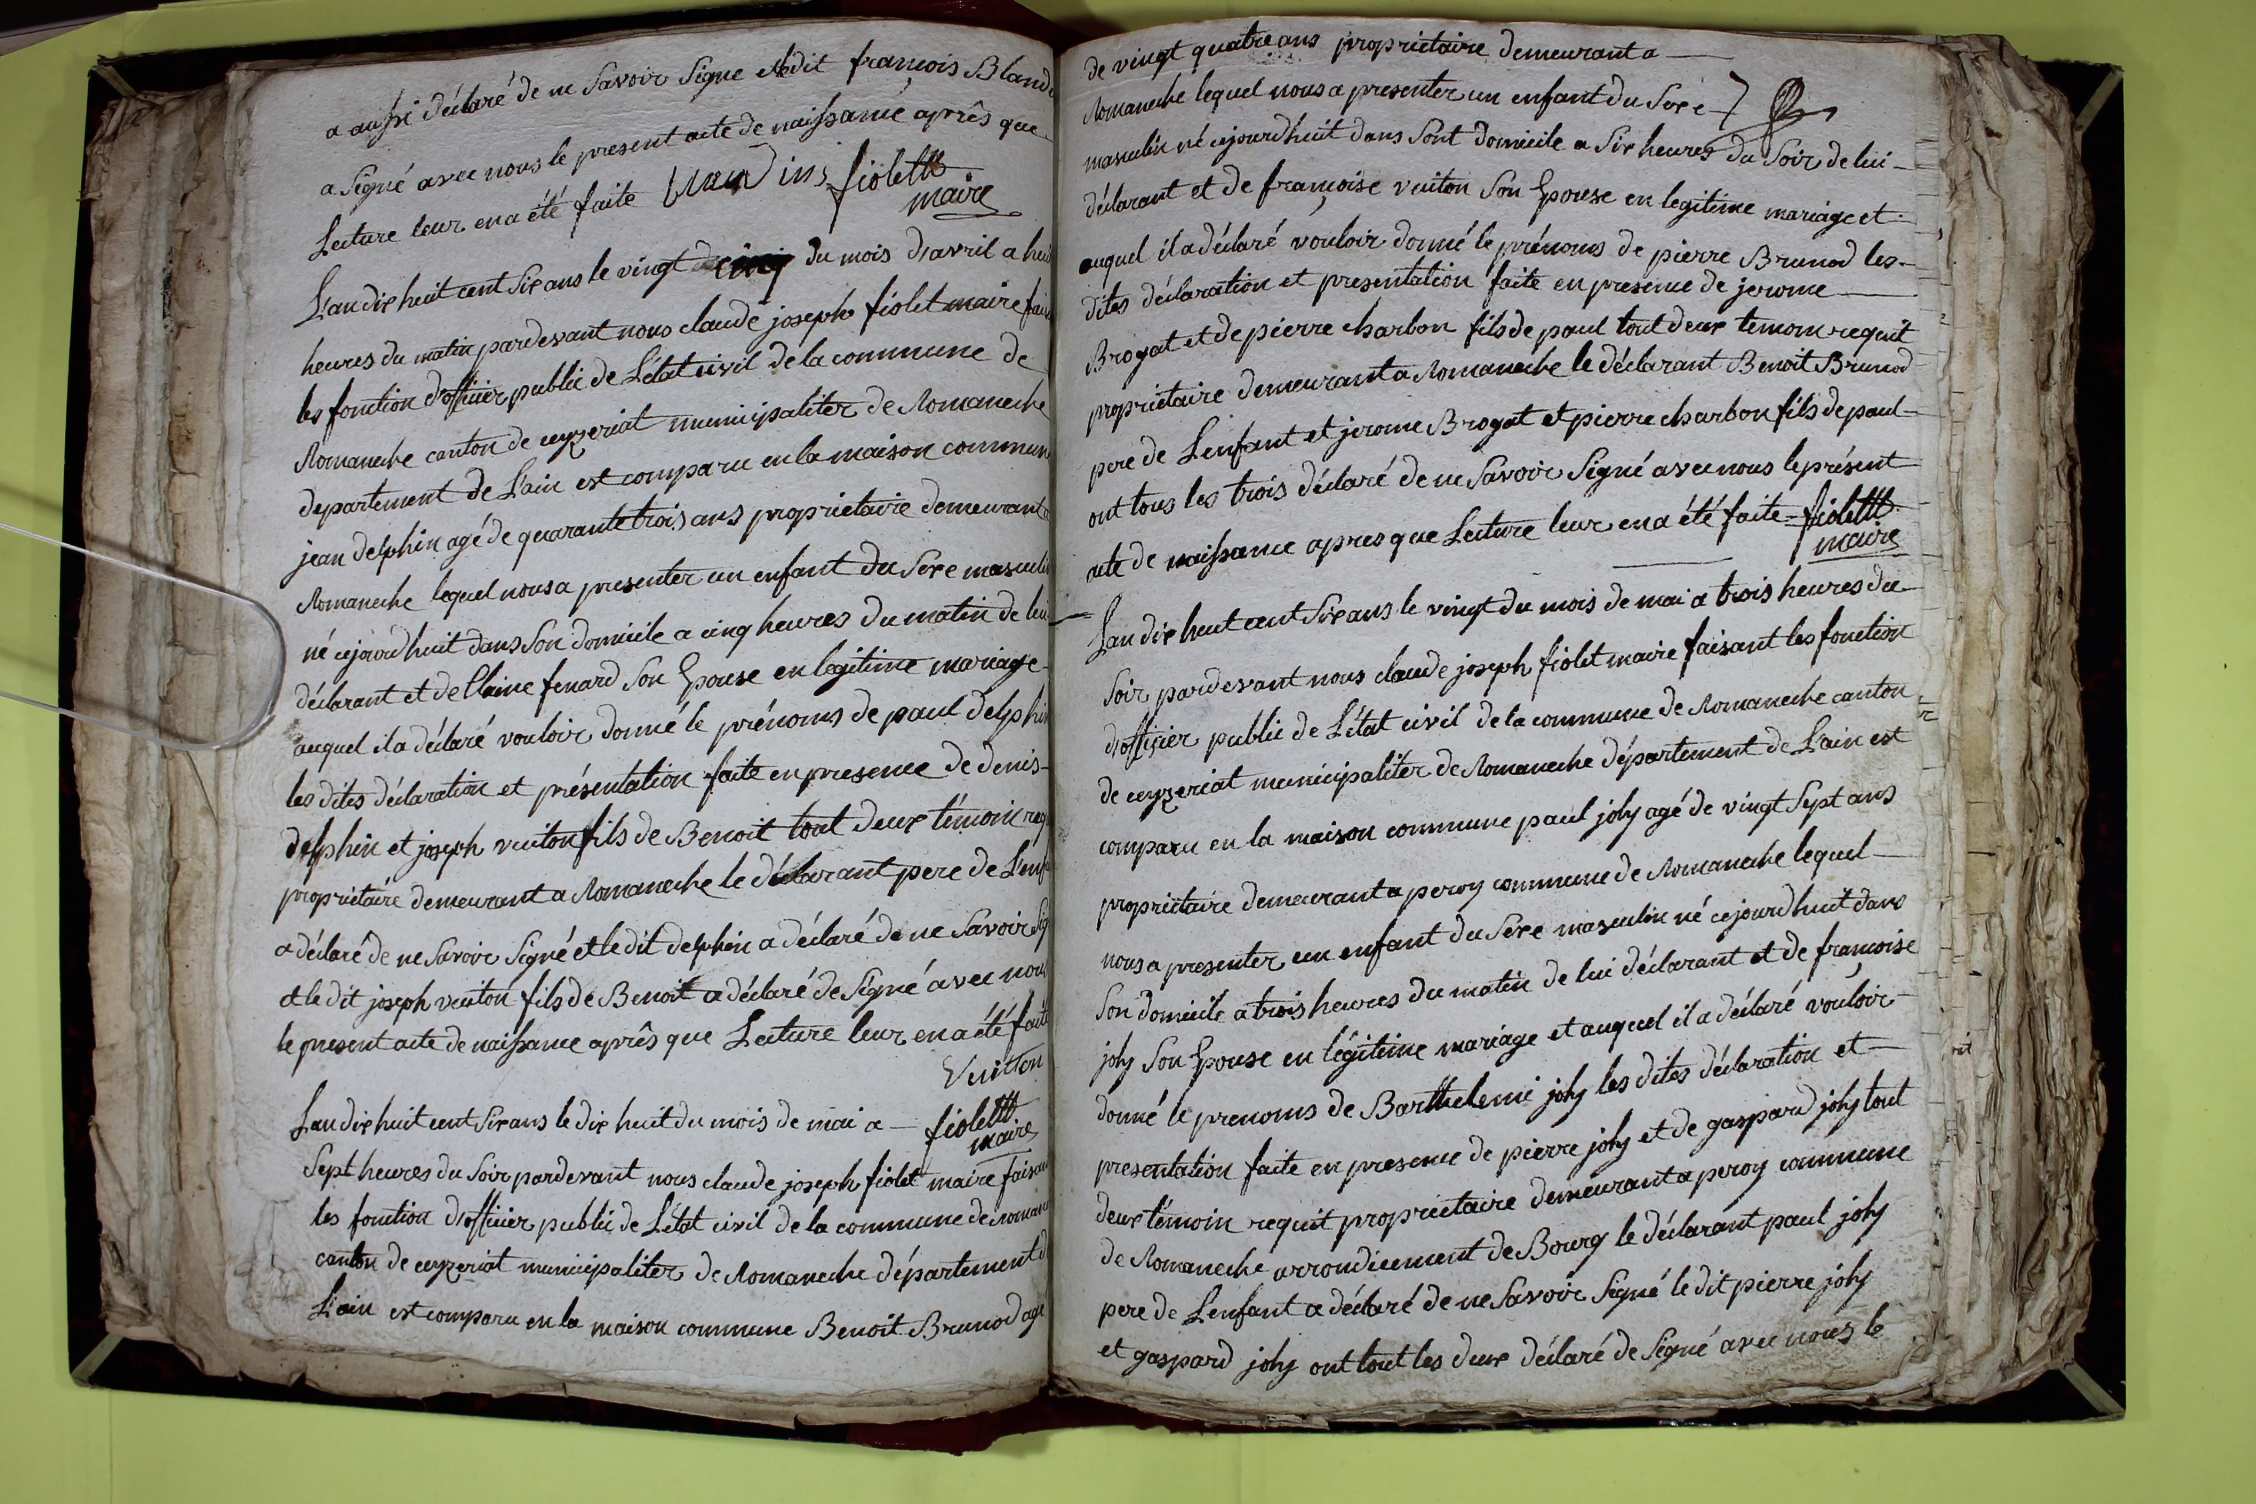 a aussi déclaré de ne Savoir Signe et ledit françois Bland
a Signé avec nous le present acte de naissance après que
Lecture leur en a été faite fiolett
maire
L'an dix huit cent Six ans le vingt cinq du mois d'avril a huit
heures du matin pardevant nous claude joseph fiolet maire fais
les fonction d'officier public de L'état civil de la commune de
Romaneche canton de ceyzeriat municipaliter de Romaneche
departement de L'ain est comparu en la maison commune
jean delphin agé de quarante trois ans proprietaire demeurant a
Romaneche lequel nous a presenter un enfant du Sexe masculin
né cejourdhuit dans Son domicile a cinq heures du matin de lui
déclarant et de Claine fenard Son Epouse en legitime mariage
auquel il a déclaré vouloir donné le prénoms de paul delphin
les dites déclaration et présentation faite en presence de denis
delphin et joseph vuiton fils de Benoit tout deux témoin req
proprietaire demeurant a Romaneche le déclarant pere de L'enf
a déclaré de ne Savoir Signé et le dit delphin a déclaré de ne Savoir Sig
et le dit joseph vuiton fils de Benoit a déclaré de Signé avec nous
le present acte de naissance après que Lecture leur en a été faite
Vuitton
L'an dix huit cent Six ans le dix huit du mois de mai a fiolett
maire
Sept heures du Soir pardevant nous claude joseph fiolet maire faisan
les fonction d'officier public de L'état civil de la commune de Roman
canton de ceyzeriat municipaliter de Romaneche département d
L'ain est comparu en la maison commune Benoit Brunod agé
de vingt quatre ans proprietaire demeurant a
Romaneche lequel nous a presenter un enfant du Sexe
masculin né cejourdhuit dans Sont domicile a Six heures du Soir de lui
déclarant et de françoise vuiton Son Epouse en legitime mariage et
auquel il a déclaré vouloir donné le prénoms de pierre Brunod les
dites déclaration et presentation faite en presence de jerome
Brogat et de pierre charbon fils de paul tout deux temoin requit
proprietaire demeurant a Romaneche le déclarant Benoit Brunod
pere de L'enfant et jerome Brogat et pierre charbon fils de paul
ont tous les trois déclaré de ne Savoir Signé avec nous le présent
acte de naissance apres que Lecture leur en a été faite fiolett
maire
L'an dix huit cent Six ans le vingt du mois de mai a trois heures du
Soir pardevant nous claude joseph fiolet maire faisant les fonction
d'officier public de L'état civil de la commune de Romaneche canton
de ceyzeriat municipaliter de Romaneche département de L'ain est
comparu en la maison commune paul joly agé de vingt Sept ans
proprietaire demeurant a peroy commune de Romaneche lequel
nous a presenter un enfant du Sexe masculin né cejourdhuit dans
Son domicile a trois heures du matin de lui déclarant et de françoise
joly Son Epouse en légitime mariage et auquel il a déclaré vouloir
donné le prenoms de Barthelemi joly les dites déclaration et
presentation faite en presence de pierre joly et de gaspard joly tout
deux témoin requit proprietaire demeurant a peroy commune
de Romaneche arrondicement de Bourg le déclarant paul joly
pere de L'enfant a déclaré de ne Savoir Signé le dit pierre joly
et gaspard joly ont tout les deux déclaré de Signé avec nous le